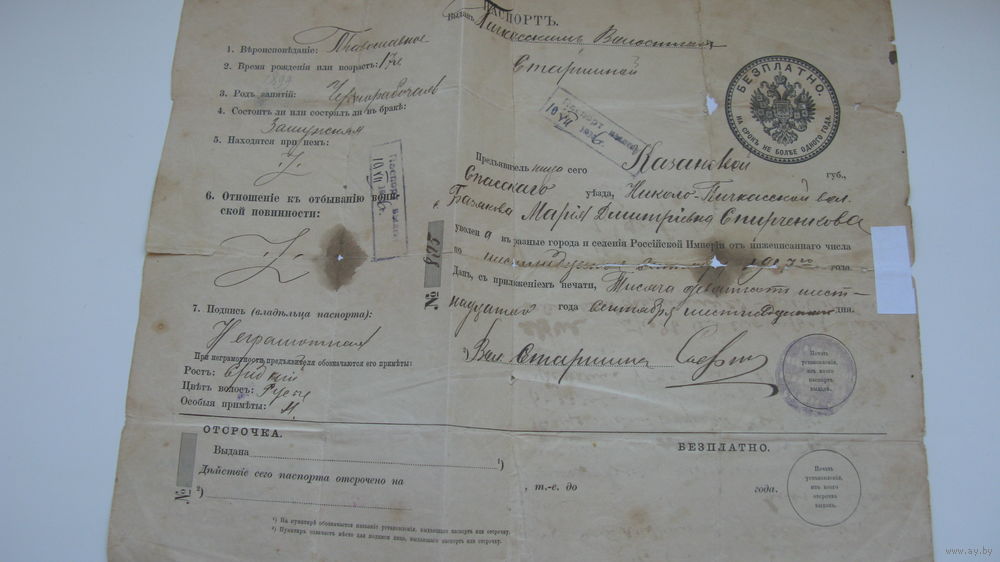 ПАСПОРТЪ.
Выданъ Пичкасскимъ Волостнымъ
Старшиной
1. Вѣроисповѣданіе: Православное
2. Время рожденія или возрастъ:
3. Родъ занятій: Чернорабочая
4. Состоитъ ли или состоялъ ли въ бракѣ:
Замужняя
5. Находятся при немъ:
6. Отношеніе къ отбыванію воин-
ской повинности:
7. Подпись (владѣльца паспорта):
Неграмотная
При неграмотности предъявителя обозначаются его примѣты:
Ростъ: средній
Цвѣтъ волосъ: русы
Особыя примѣты:
БЕЗПЛАТНО.
НА СРОКЪ НЕ БОЛѢЕ ОДНОГО ГОДА.
Паспортъ
10 VII
Паспортъ
10 VII
№ 895
Предъявитель сего Казанской губ.,
Спасскаго уѣзда, Николо-Пичкасской вол.
Марія Дмитріевна
уволена въ разные города и селенія Россійской Имперіи отъ нижеписаннаго числа
по года.
Данъ, съ приложеніемъ печати, Тысяча девятьсотъ шест-
надцатаго года сентября дня.
Вол. Старшина
Печать
установленія,
изъ коего
паспортъ
выданъ.
ОТСРОЧКА.
БЕЗПЛАТНО.
Выдана ¹)
Дѣйствіе сего паспорта отсрочено на , т.-е. до года.
²)
№
Печать
установленія,
изъ коего
отсрочка
выдана.
¹) На пунктирѣ обозначается названіе установленія, выдавшаго паспортъ или отсрочку.
²) Пунктиръ означаетъ мѣсто для подписи лица, выдавшаго паспортъ или отсрочку.
www.ay.by